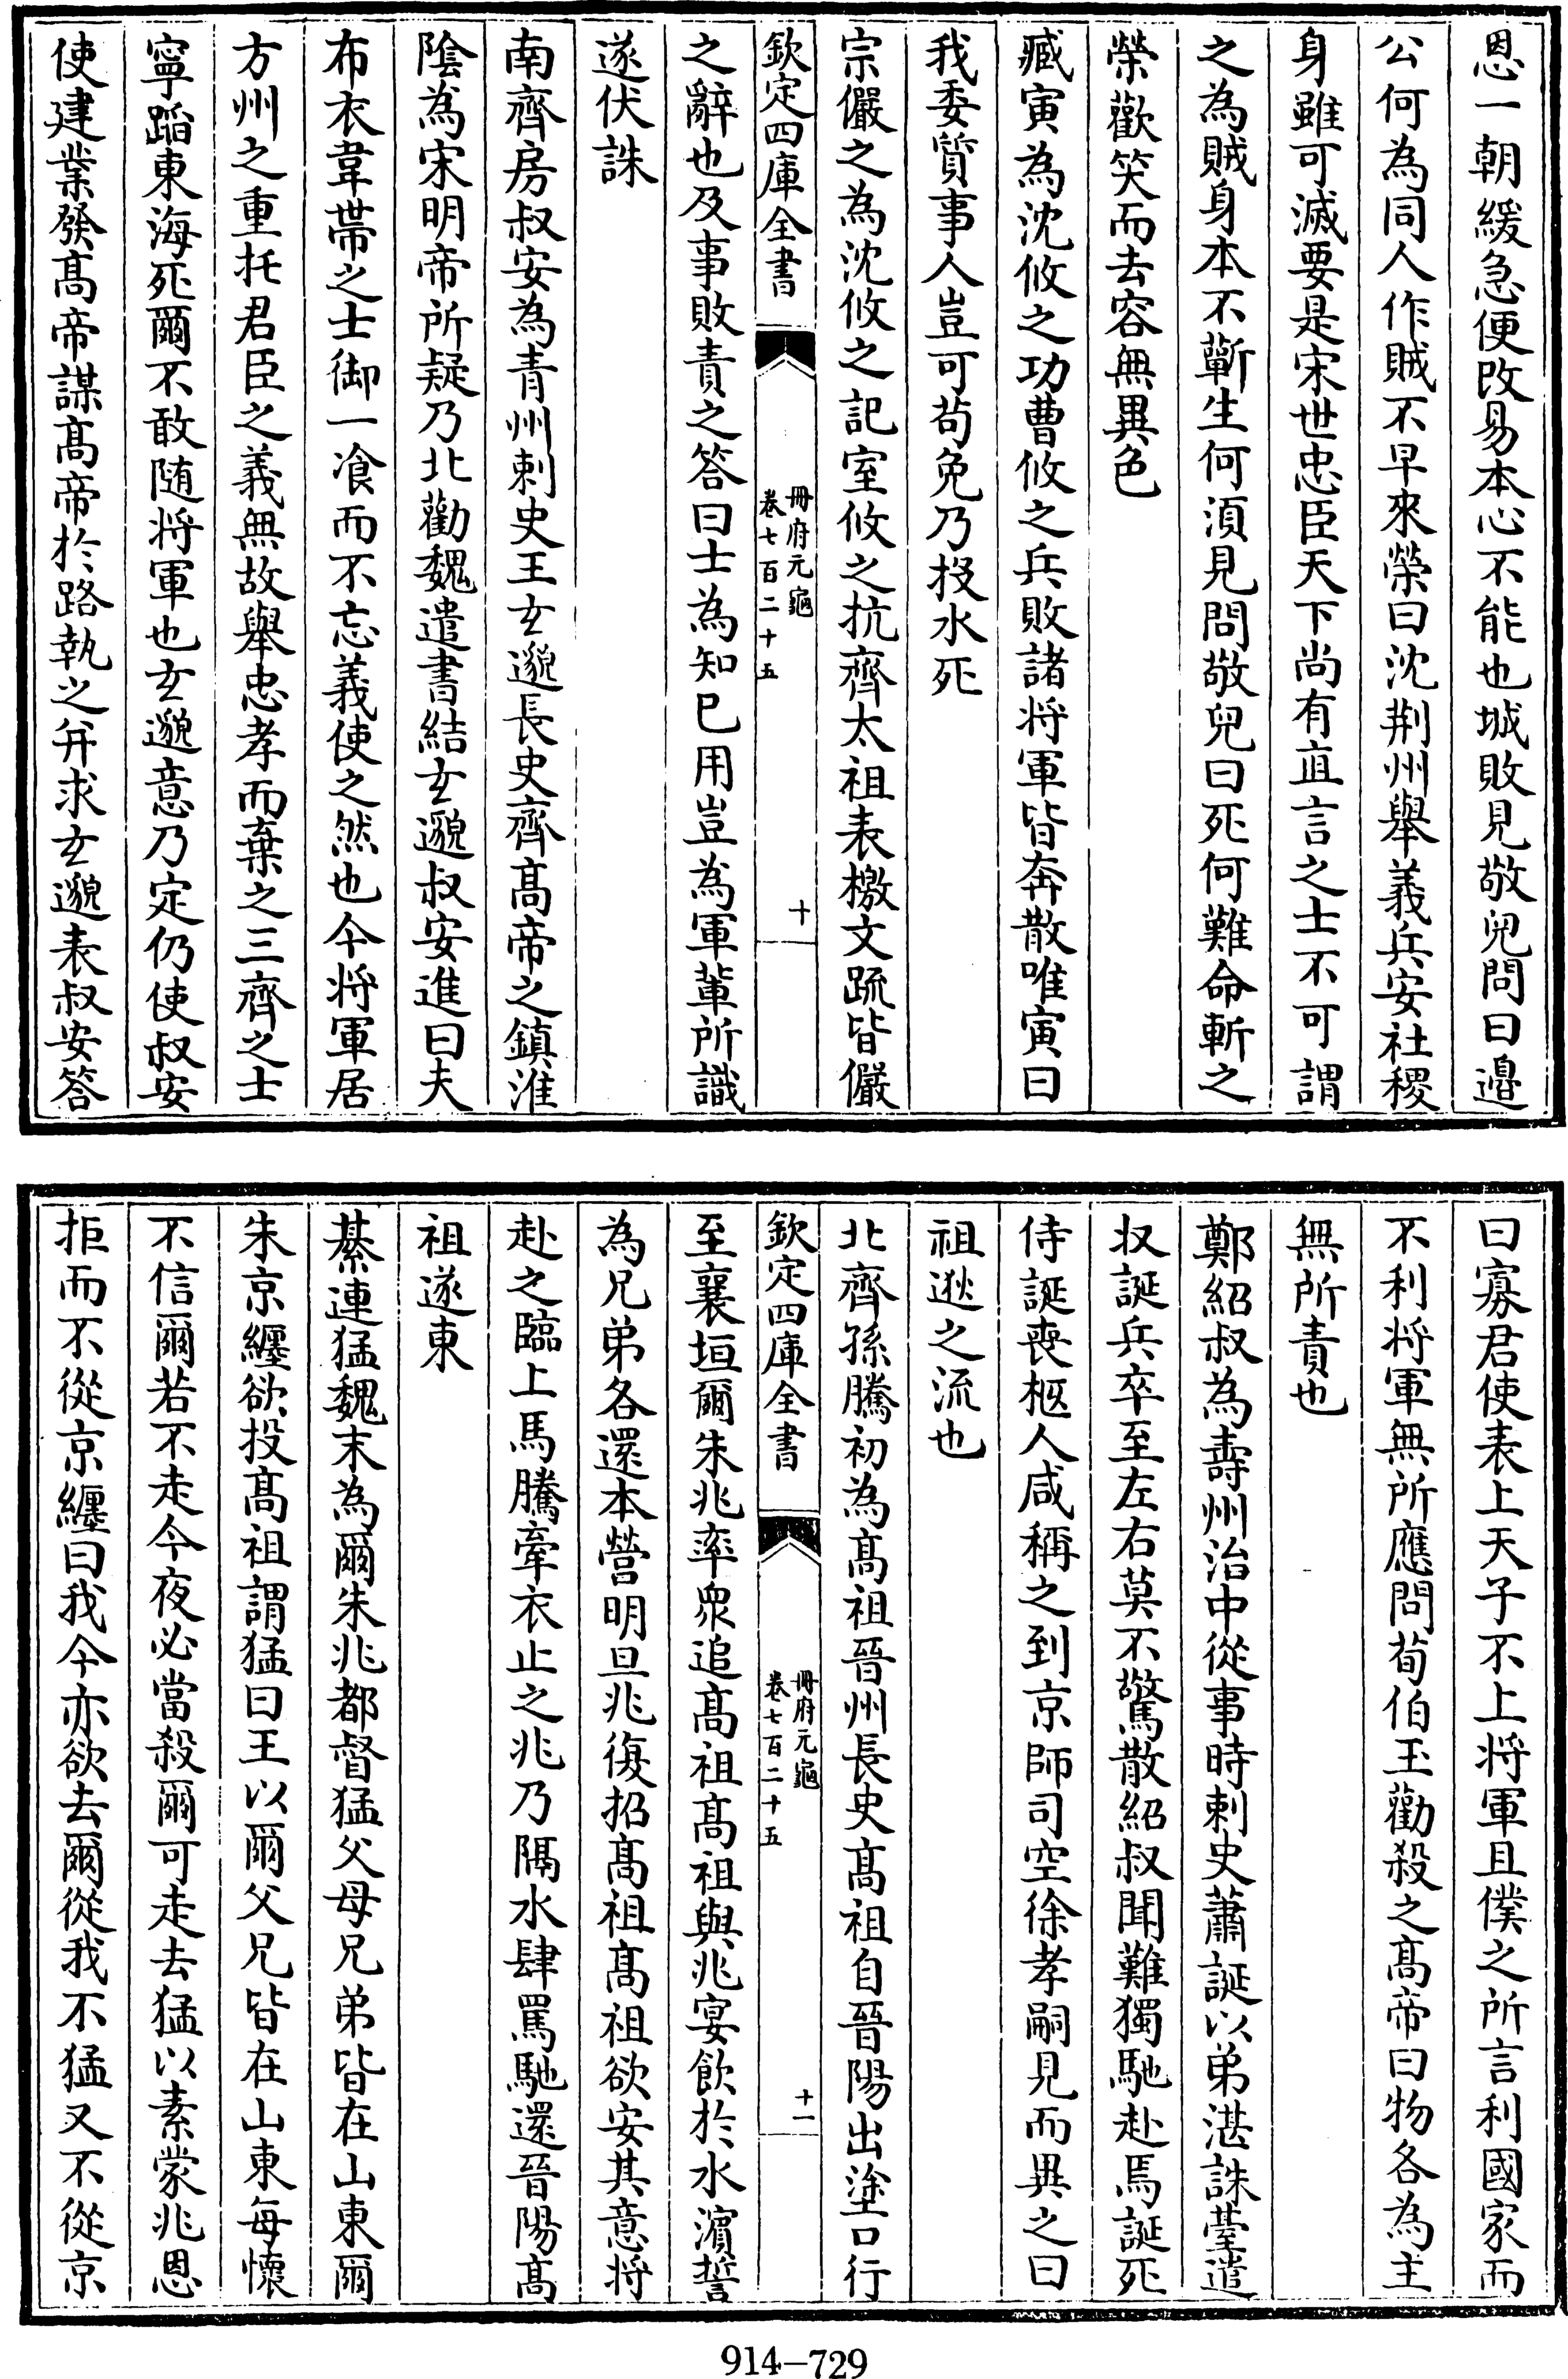 恩一朝緩急便改易本心不能也城敗見敬兒問曰邉
公何為同人作賊不早來榮曰沈荆州舉義兵安社稷
身雖可滅要是宋世忠臣天下尚有直言之士不可謂
之為賊身本不蘄生何湏見問敬兒曰死何難命斬之
榮歡笑而去容無異色
臧寅為沈攸之功曹攸之兵敗諸将軍皆奔散唯寅曰
我委質事人豈可苟免乃投水死
宗儼之為沈攸之記室攸之抗齊太祖表檄文疏皆儼
欽定四庫全書
冊府元龜
卷七百二十五
十
之辭也及事敗責之答曰士為知已用豈為軍輩所識
遂伏誅
南齊房叔安為青州刺史王玄邈長史齊髙帝之鎮淮
陰為宋明帝所疑乃北勸魏遣書結玄邈叔安進曰夫
布衣韋帶之士御一飡而不忘義使之然也今將軍居
方州之重托君臣之義無故舉忠孝而棄之三齊之士
寧蹈東海死爾不敢随将軍也玄邈意乃定仍使叔安
使建業發髙帝謀髙帝於路執之并求玄邈表叔安答
曰寡君使表上天子不上将軍且僕之所言利國家而
不利将軍無所應問荀伯玉勸殺之髙帝曰物各為主
無所責也
鄭紹叔為壽州治中從事時刺史蕭誕以弟湛誅臺遣
収誕兵卒至左右莫不驚散紹叔聞難獨馳赴焉誕死
侍誕喪柩人咸稱之到京師司空徐孝嗣見而異之曰
祖逖之流也
北齊孫騰初為髙祖晉州長史髙祖自晉陽出塗口行
欽定四庫全書
冊府元龜
卷七百二十五
十一
至襄垣爾朱兆率衆追髙祖髙祖與兆宴飲於水濵誓
為兄弟各還本營明旦兆復招髙祖髙祖欲安其意将
赴之臨上馬騰牽衣止之兆乃隔水肆罵馳還晉陽髙
祖遂東
綦連猛魏末為爾朱兆都督猛父母兄弟皆在山東爾
朱京纒欲投髙祖謂猛曰王以爾父兄皆在山東每懷
不信爾若不走今夜必當殺爾可走去猛以素蒙兆恩
拒而不從京纒曰我今亦欲去爾從我不猛又不從京
914-729